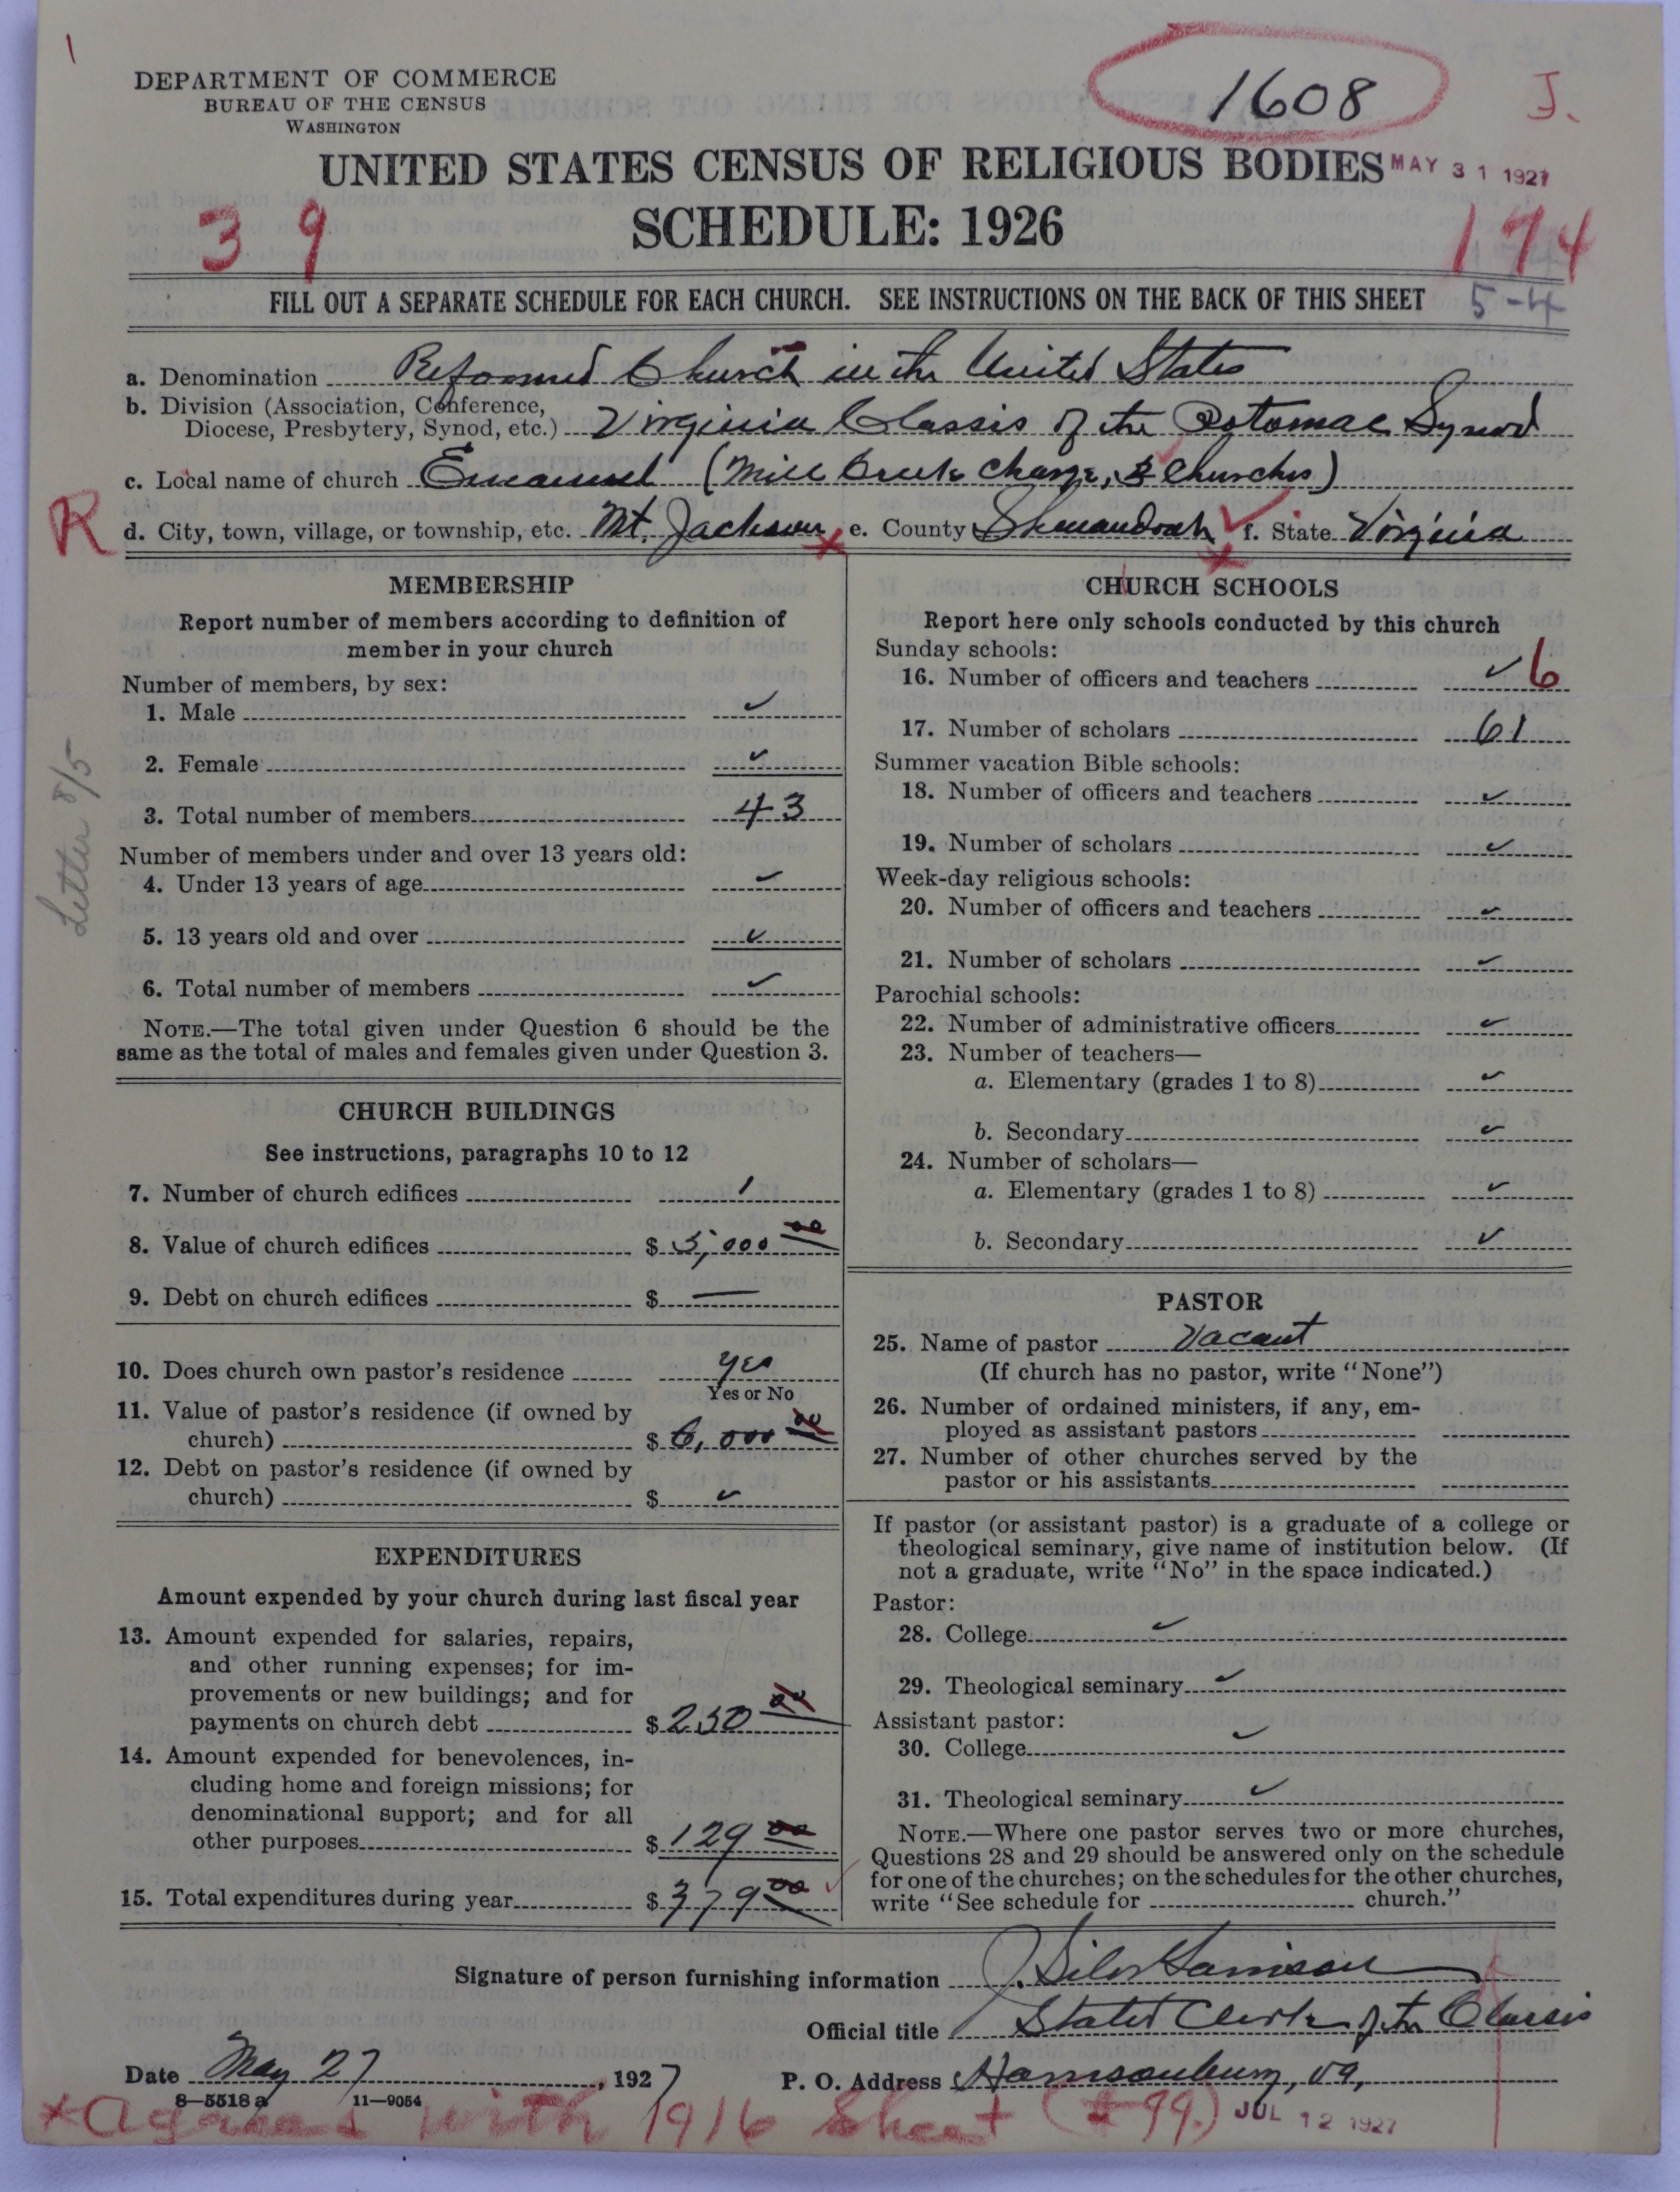 1
DEPARTMENT OF COMMERCE
BUREAU OF THE CENSUS
WASHINGTON
1608
J.
UNITED STATES CENSUS OF RELIGIOUS BODIES
MAY 31 1927
SCHEDULE: 1926
39
174
FILL OUT A SEPARATE SCHEDULE FOR EACH CHURCH. SEE INSTRUCTIONS ON THE BACK OF THIS SHEET
5-4
a. Denomination Reformed Church in the United States
b. Division (Association, Conference,
Diocese, Presbytery, Synod, etc.) Virginia Classis of the Potomac Synod
c. Local name of church Emanuel (Mill Creek Charge, Churches)
R
d. City, town, village, or township, etc. Mt. Jackson e. County Shenandoah f. State Virginia
MEMBERSHIP
Report number of members according to definition of
member in your church
Number of members, by sex:
1. Male ✓
2. Female ✓
3. Total number of members 43
Number of members under and over 13 years old:
4. Under 13 years of age ✓
5. 13 years old and over ✓
6. Total number of members ✓
NOTE.—The total given under Question 6 should be the
same as the total of males and females given under Question 3.
Letter 8/5
CHURCH BUILDINGS
See instructions, paragraphs 10 to 12
7. Number of church edifices 1
8. Value of church edifices $ 5,000 00
9. Debt on church edifices $ —
10. Does church own pastor's residence yes
Yes or No
11. Value of pastor's residence (if owned by
church) $ 6,000 00
12. Debt on pastor's residence (if owned by
church) $ ✓
EXPENDITURES
Amount expended by your church during last fiscal year
13. Amount expended for salaries, repairs,
and other running expenses; for im-
provements or new buildings; and for
payments on church debt $ 250 00
14. Amount expended for benevolences, in-
cluding home and foreign missions; for
denominational support; and for all
other purposes $ 129 00
15. Total expenditures during year $ 379 00
CHURCH SCHOOLS
Report here only schools conducted by this church
Sunday schools:
16. Number of officers and teachers ✓ 6
17. Number of scholars 61
Summer vacation Bible schools:
18. Number of officers and teachers ✓
19. Number of scholars ✓
Week-day religious schools:
20. Number of officers and teachers ✓
21. Number of scholars ✓
Parochial schools:
22. Number of administrative officers ✓
23. Number of teachers—
a. Elementary (grades 1 to 8) ✓
b. Secondary ✓
24. Number of scholars—
a. Elementary (grades 1 to 8) ✓
b. Secondary ✓
PASTOR
25. Name of pastor Vacant
(If church has no pastor, write "None")
26. Number of ordained ministers, if any, em-
ployed as assistant pastors
27. Number of other churches served by the
pastor or his assistants
If pastor (or assistant pastor) is a graduate of a college or
theological seminary, give name of institution below. (If
not a graduate, write "No" in the space indicated.)
Pastor:
28. College ✓
29. Theological seminary ✓
Assistant pastor:
30. College ✓
31. Theological seminary ✓
NOTE.—Where one pastor serves two or more churches,
Questions 28 and 29 should be answered only on the schedule
for one of the churches; on the schedules for the other churches,
write "See schedule for church."
Signature of person furnishing information J. Silor Garrison
Official title Stated Clerk of the Classis
Date May 27, 1927
P. O. Address Harrisonburg, Va.
8—5518 a 11—9054
*Agrees with 1916 Sheet (#99.)
JUL 12 1927